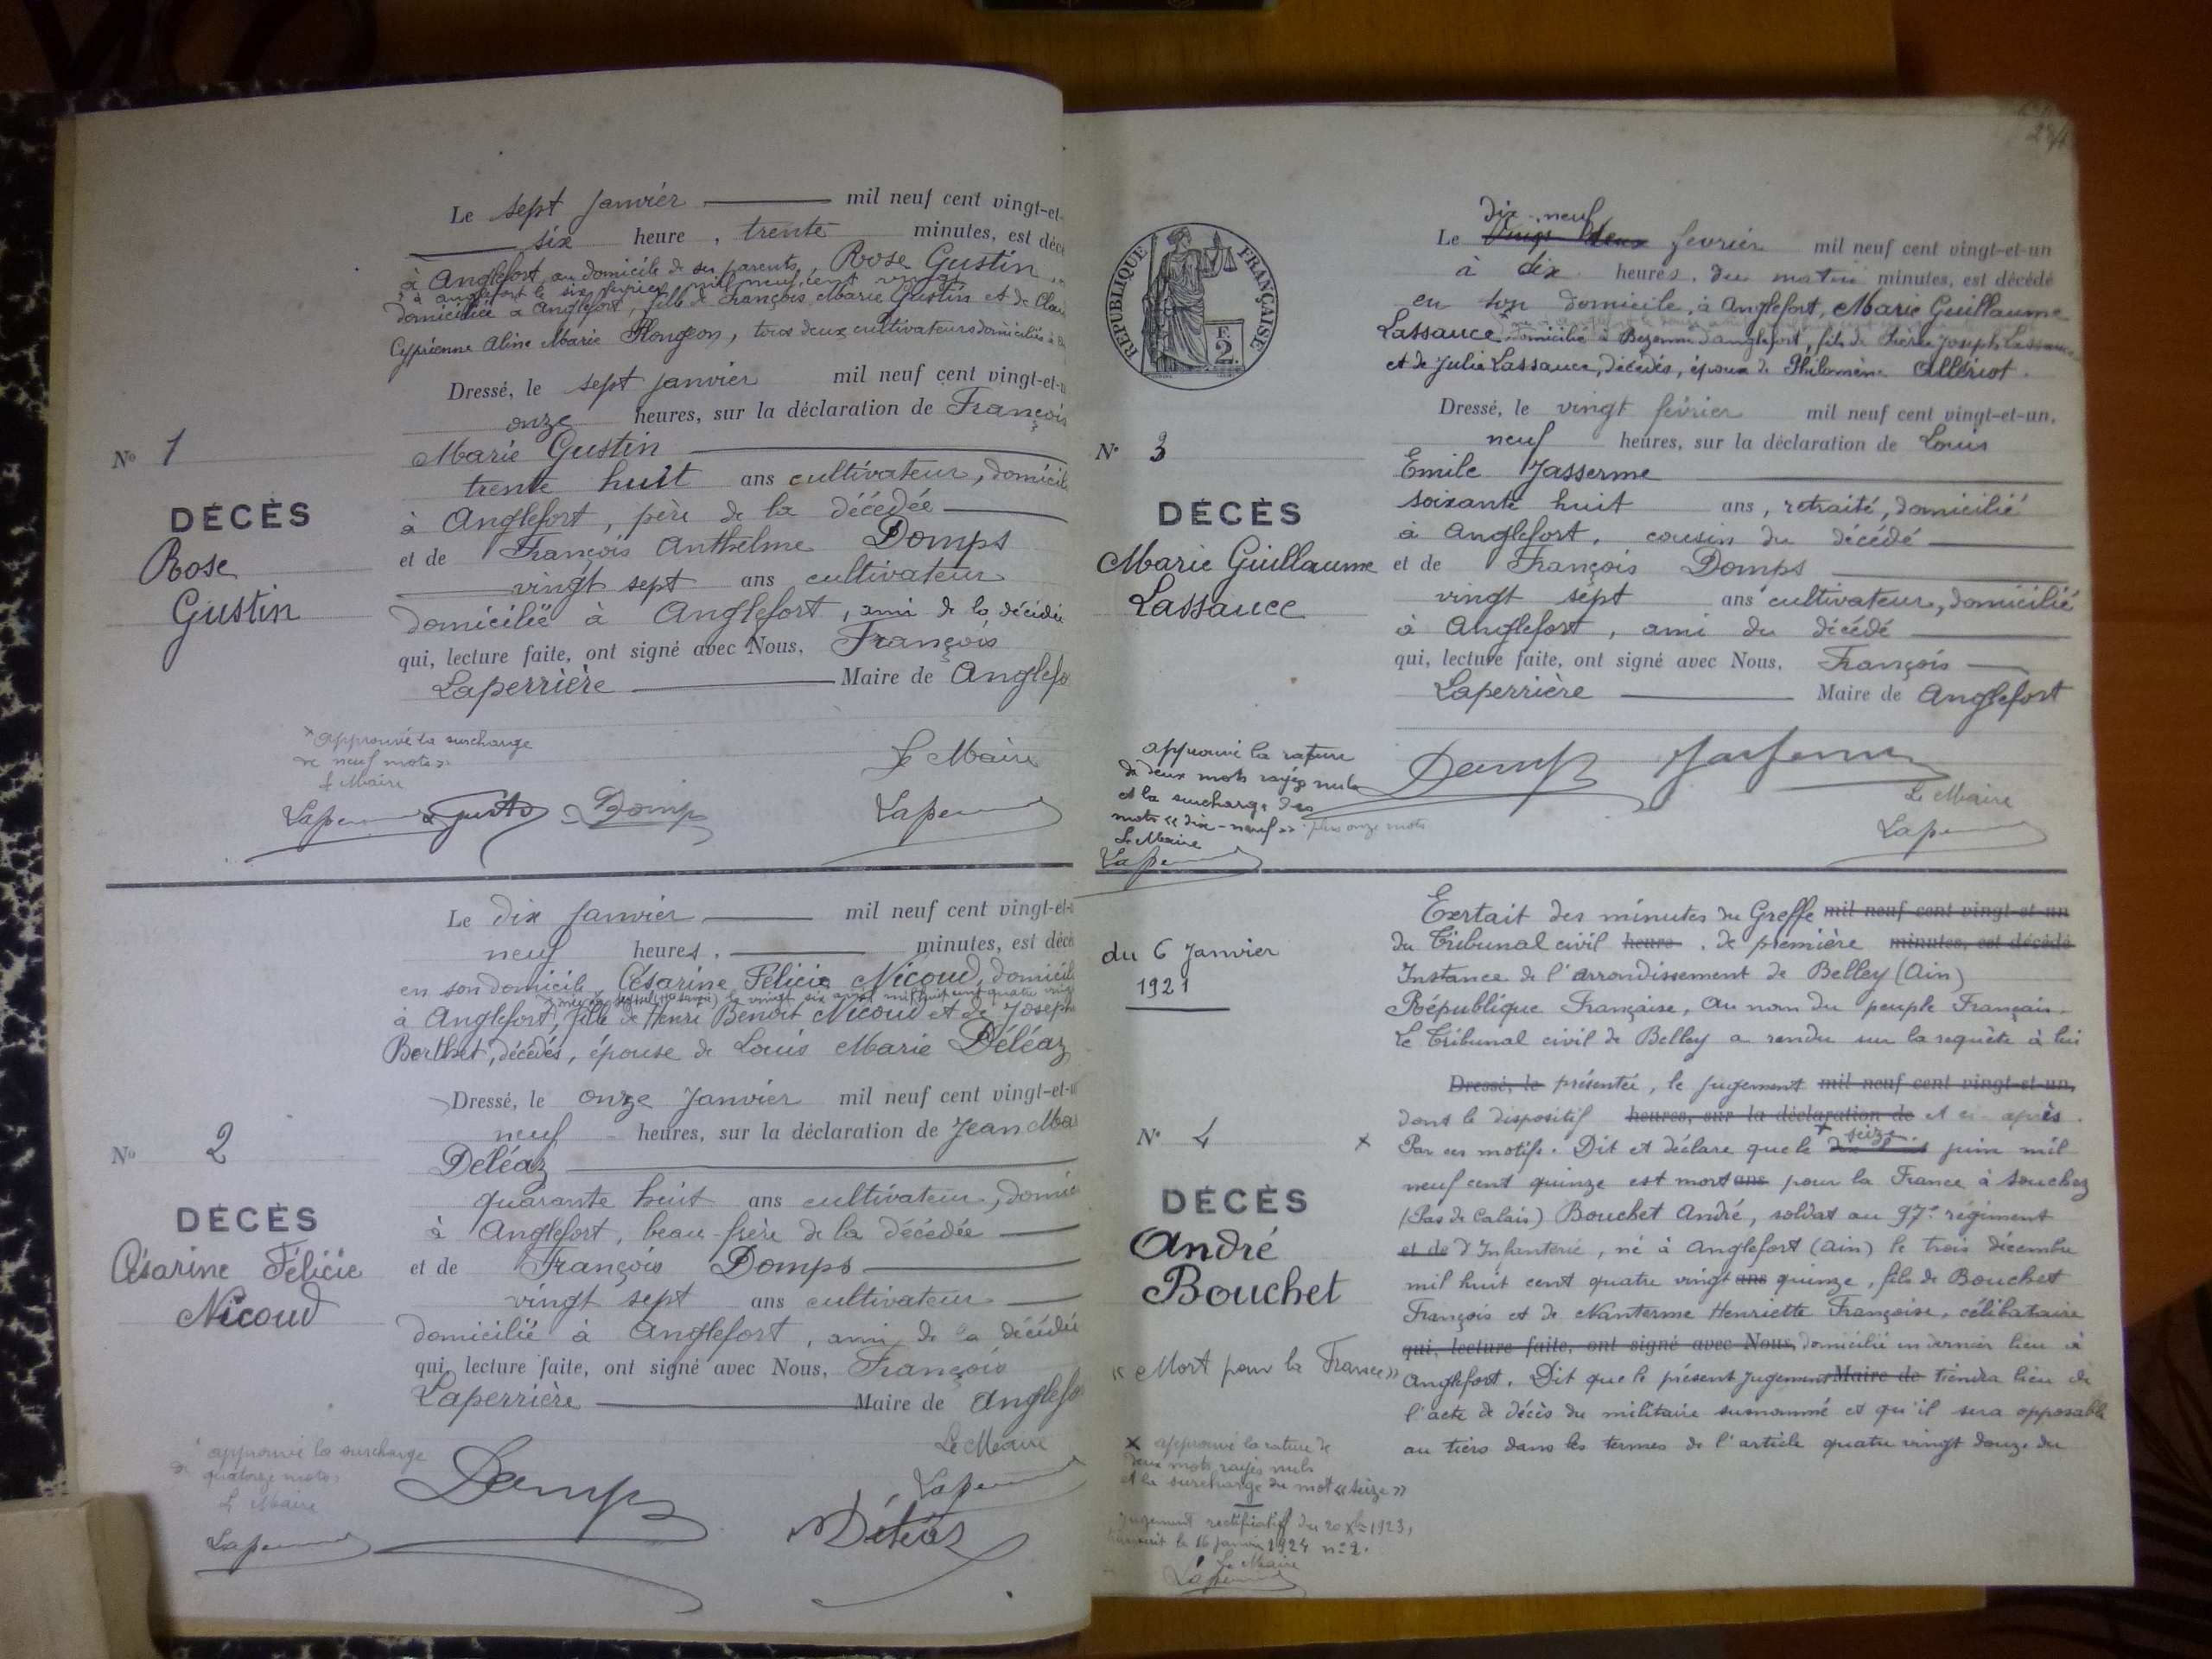 Le sept janvier mil neuf cent vingt-et-
six heure, trente minutes, est décé
à Anglefort, au domicile de ses parents, Rose Gustin
à anglefort le six février mil neuf cent vingt
domiciliée à Anglefort, fille de François Marie Gustin et de Clau
Cyprienne Aline Marie Plongeon, tous deux cultivateurs domiciliés à
Dressé, le sept janvier mil neuf cent vingt-et-u
onze heures, sur la déclaration de François
Marie Gustin
trente huit ans cultivateur, domicil
à Anglefort, père de la décédée
et de François Anthelme Domps
vingt sept ans cultivateur
domicilié à Anglefort, ami de la décédée
qui, lecture faite, ont signé avec Nous, François
Laperrière Maire de Anglefo
No 1
DÉCÈS
Rose
Gustin
x approuvé la surcharge
de neuf mots
Le Maire
Le Maire
Le dix janvier mil neuf cent vingt-et-
neuf heures, minutes, est décé
en son domicile, Césarine Félicie Nicoud, domicil
le vingt six avril mil huit cent quatre ving
à Anglefort, fille de Henri Benoit Nicoud et de Joseph
Berthet, décédés, épouse de Louis Marie Déléaz
Dressé, le onze janvier mil neuf cent vingt-et-u
neuf heures, sur la déclaration de Jean Ma
Deléaz
quarante huit ans cultivateur, domic
à Anglefort, beau-frère de la décédée
et de François Domps
vingt sept ans cultivateur
domicilié à Anglefort, ami de la décédée
qui, lecture faite, ont signé avec Nous, François
Laperrière Maire de Anglefo
No 2
DÉCÈS
Césarine Félicie
Nicoud
approuvé la surcharge
de quatorze mots
Le Maire
Le Maire
RÉPUBLIQUE FRANÇAISE
F.
2.
dix-neuf
Le Vingt deux février mil neuf cent vingt-et-un
à dix heures, du matin minutes, est décédé
en son domicile, à Anglefort, Marie Guillaume
Lassauce, domicilié à Bezonne d'anglefort, fils de Pierre Joseph Lassauce
et de Julie Lassauce, décédés, époux de Philomène Allériot.
Dressé, le vingt février mil neuf cent vingt-et-un,
neuf heures, sur la déclaration de Louis
Emile Jasserme
soixante huit ans, retraité, domicilié
à Anglefort, cousin du décédé
et de François Domps
vingt sept ans cultivateur, domicilié
à Anglefort, ami du décédé
qui, lecture faite, ont signé avec Nous, François
Laperrière Maire de Anglefort
No 3
DÉCÈS
Marie Guillaume
Lassauce
approuvé la rature
de deux mots rayés nuls
et la surcharge des
mots « dix-neuf » plus onze mots
Le Maire
Le Maire
Extrait des minutes du Greffe mil neuf cent vingt-et-un
du Tribunal civil heure, de première minutes, est décédé
Instance de l'arrondissement de Belley (Ain)
République Française, Au nom du peuple Français.
Le Tribunal civil de Belley a rendu sur la requête à lui
Dressé, le présentée, le jugement mil neuf cent vingt-et-un,
dont le dispositif heures, sur la déclaration de et ci-après.
x Par ces motifs. Dit et déclare que le seize juin mil
neuf cent quinze est mort ans pour la France à Souchez
(Pas de Calais) Bouchet André, soldat au 97e régiment
et de d'Infanterie, né à Anglefort (Ain) le trois décembre
mil huit cent quatre vingt ans quinze, fils de Bouchet
François et de Nanterme Henriette Françoise, célibataire
qui, lecture faite, ont signé avec Nous, domicilié en dernier lieu à
Anglefort. Dit que le présent jugement Maire de tiendra lieu de
l'acte de décès du militaire susnommé et qu'il sera opposable
au tiers dans les termes de l'article quatre vingt douze du
du 6 Janvier
1921
No 4
DÉCÈS
André
Bouchet
« Mort pour la France »
x approuvé la rature de
deux mots rayés nuls
et la surcharge du mot « seize »
Jugement rectificatif du 20 Xbre 1923,
transcrit le 16 janvier 1924 no 2.
Le Maire